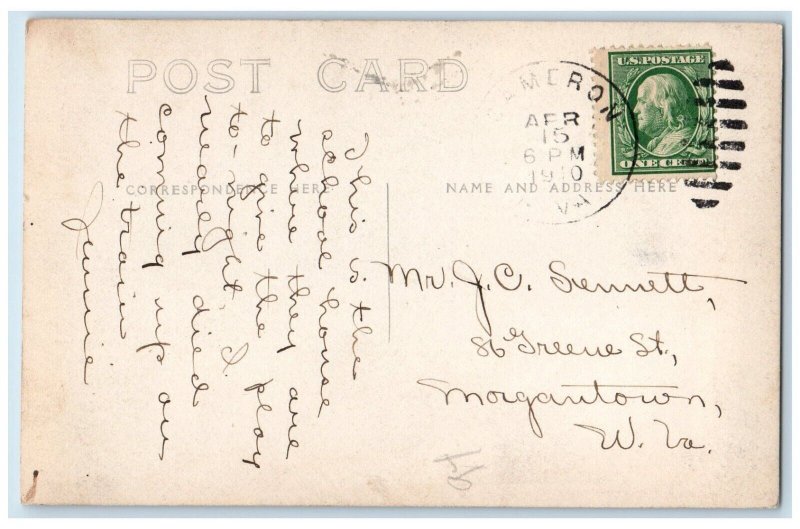 POST CARD
CORRESPONDENCE HERE
NAME AND ADDRESS HERE
U.S. POSTAGE
ONE CENT
MERON
APR
15
6 PM
1910
VA
This is the
school house
where they are
to give the play
to-night. I
nearly died
coming up on
the train
Jennie
Mr. J. C. Sennett,
86 Greene St.,
Morgantown,
W. Va.